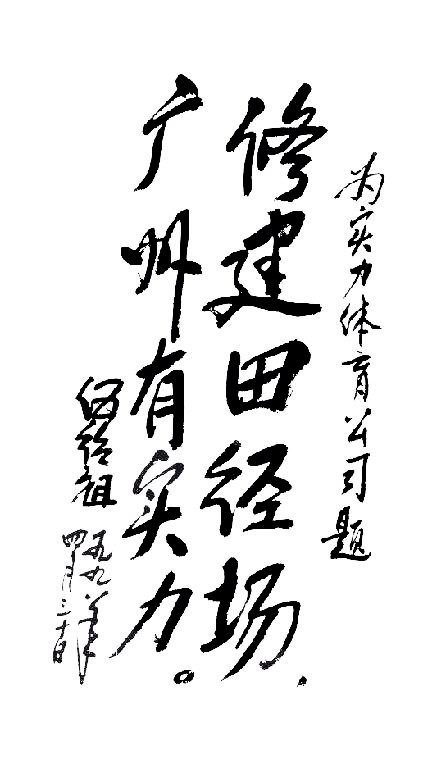 为实力体育公司题
修建田径场，
广州有实力。
伍绍祖
一九九八年
四月三十日